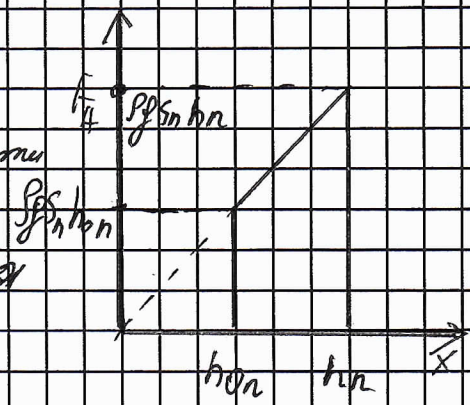 F_A
ρgS_n h_n
ρgS_n h_{0n}
h_{0n} h_n
x